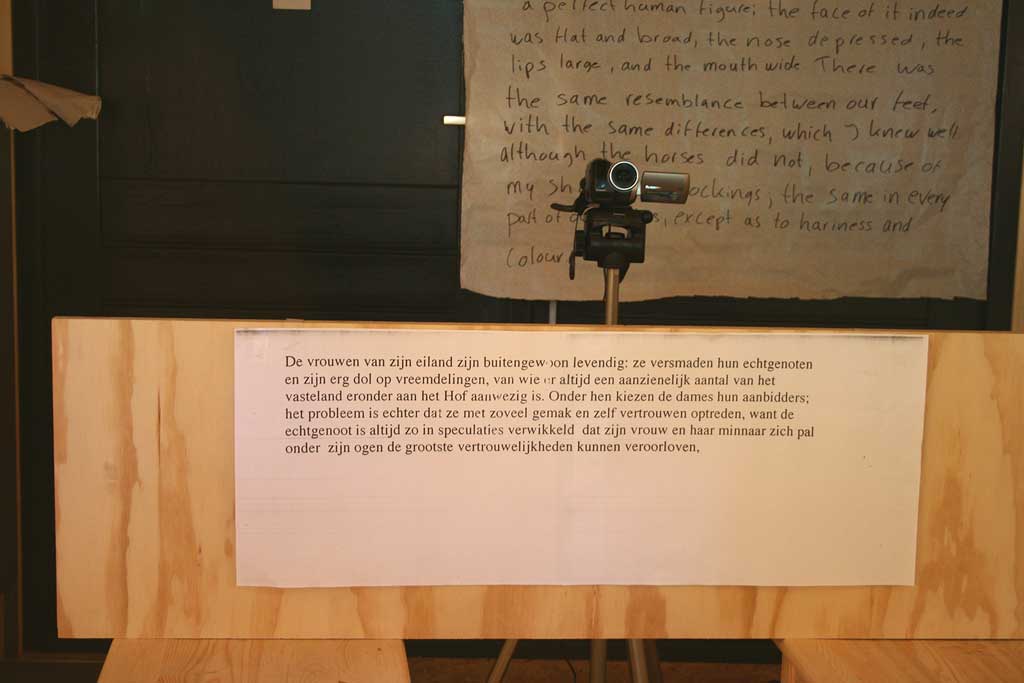 a perfect human figure; the face of it indeed
was flat and broad, the nose depressed, the
lips large, and the mouth wide There was
the same resemblance between our feet,
with the same differences, which I knew well
although the horses did not, because of
my ockings; the same in every
part of except as to hariness and
Colour
De vrouwen van zijn eiland zijn buitengewoon levendig: ze versmaden hun echtgenoten
en zijn erg dol op vreemdelingen, van wie er altijd een aanzienelijk aantal van het
vasteland eronder aan het Hof aanwezig is. Onder hen kiezen de dames hun aanbidders;
het probleem is echter dat ze met zoveel gemak en zelf vertrouwen optreden, want de
echtgenoot is altijd zo in speculaties verwikkeld dat zijn vrouw en haar minnaar zich pal
onder zijn ogen de grootste vertrouwelijkheden kunnen veroorloven,